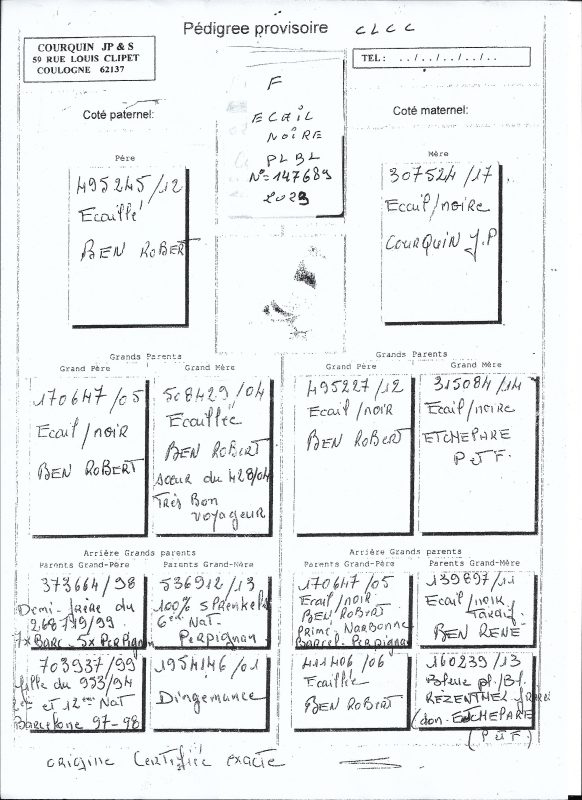 Pédigree provisoire CLCC
COURQUIN JP & S
59 RUE LOUIS CLIPET
COULOGNE 62137
TEL : ../../../../..
F
ECAIL
NOIRE
PLBL
N°=147689
2023
Coté paternel:
Coté maternel:
Père
495245/12
Ecaillé
BEN ROBERT
Mère
307524/17
Ecail/noire
COURQUIN J.P
Grands Parents
Grand Père
Grand Mère
170647/05
Ecail/noir
BEN ROBERT
508429/04
Ecaillée
BEN ROBERT
sœur du 428/04
Très Bon
voyageur
Grands Parents
Grand Père
Grand Mère
495227/12
Ecail/noir
BEN ROBERT
315084/14
Ecail/noire
ETCHEPARE
P et F.
Arrière Grands parents
Parents Grand-Père
Parents Grand-Mère
373664/98
Demi-frère du
268719/99
7x Barc. 5x Perpignan
536912/13
100% Sprenkels
6eme Nat.
Perpignan
703937/99
fille du 953/94
et 12eme Nat
Barcelone 97-98
1954146/01
Dingemance
Arrière Grands parents
Parents Grand-Père
Parents Grand-Mère
170647/05
Ecail/noir
BEN ROBERT
Prime: Narbonne
Barcel. Perpignan
139897/11
Ecail/noir
Tardif.
BEN RENE
411406/06
Ecaillée
BEN ROBERT
160239/13
Bleue pl./Bl.
REZENTHEL
(don ETCHEPARE
(P et F.)
origine Certifiée exacte